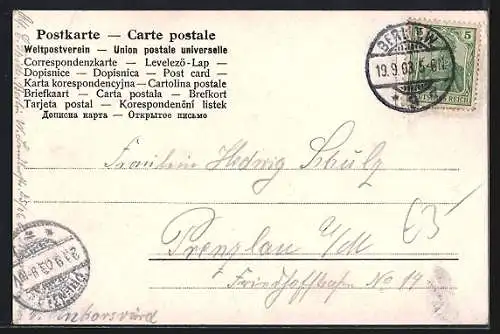 Postkarte — Carte postale
Weltpostverein — Union postale universelle
Correspondenzkarte — Levelező-Lap —
Dopisnice — Dopisnica — Post card —
Karta korespondencyjna — Cartolina postale
Briefkaart — Carta postala — Brefkort
Tarjeta postal — Korespondenční listek
Дописна карта — Открытое письмо
BERLIN S.W.
19.9.03. 5-6N.
5
DEUTSCHES REICH
Fräulein Hedwig Schulz
Prenzlau U/M
Friedhofstrasse No 14